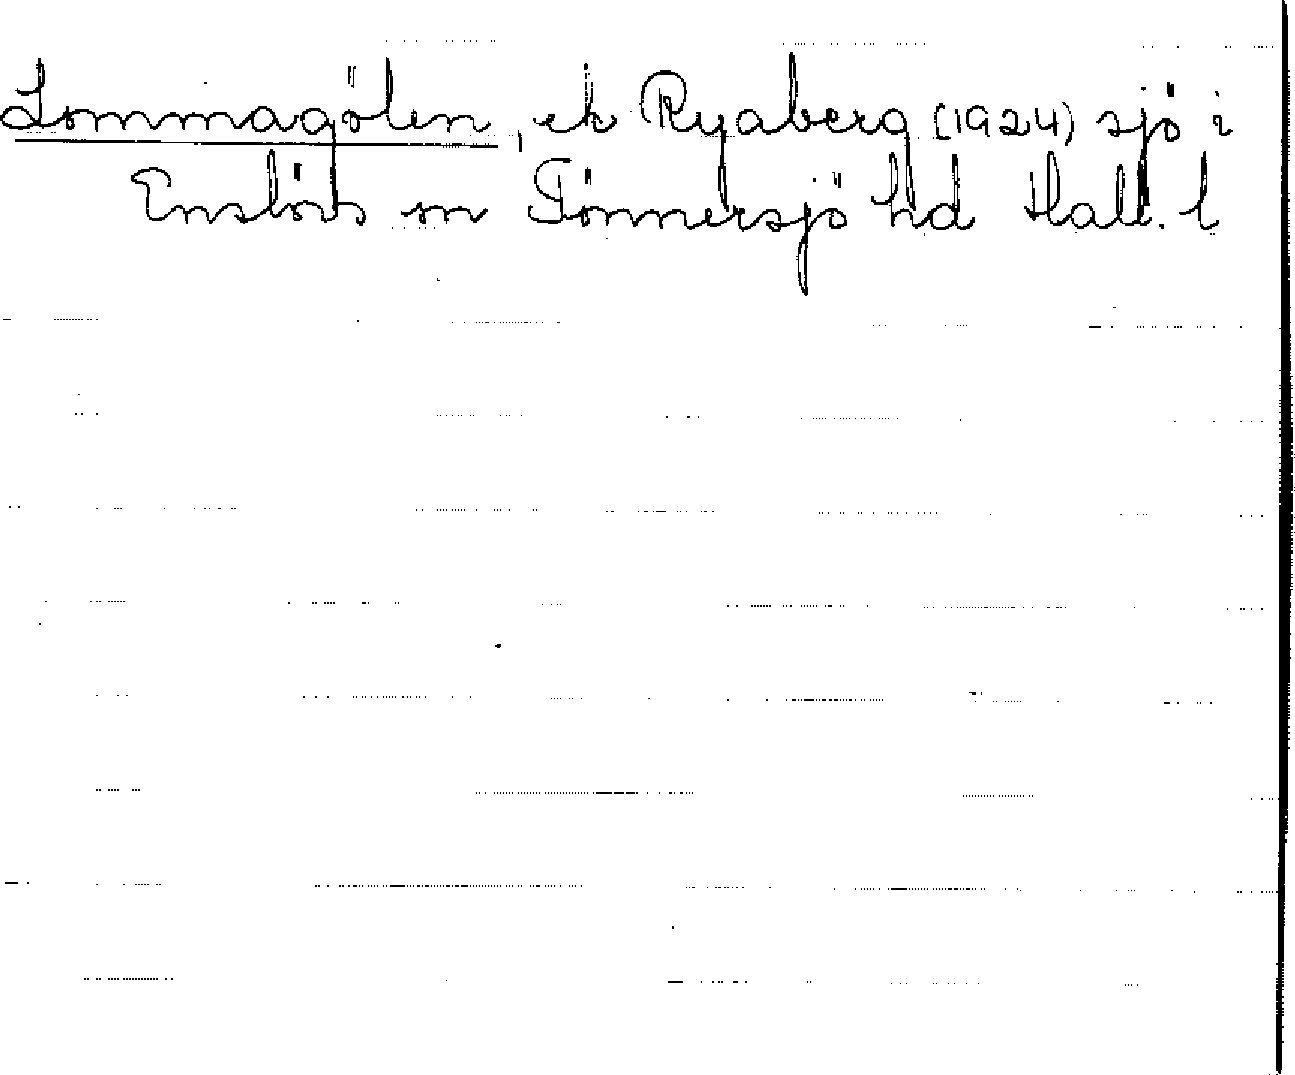 Lommagölen, ek Ryaberg (1924) sjö i
Enslövs sn Tönnersjö hd Hall. l